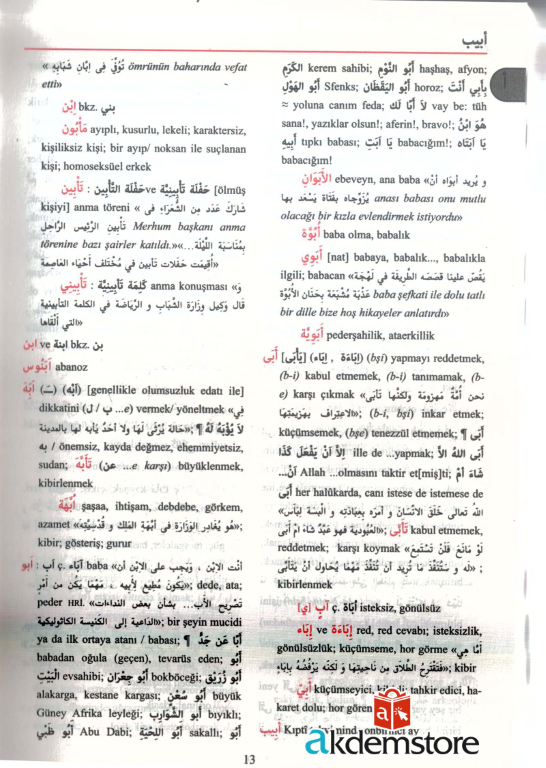 أبيب
« تُوُفِّيَ فِي اِبَّانِ شَبَابِهِ ömrünün baharında vefat
etti»
اِبْن bkz. بني
مَأْبُون ayıplı, kusurlu, lekeli; karaktersiz,
kişiliksiz kişi; bir ayıp/ noksan ile suçlanan
kişi; homoseksüel erkek
تَأْبِين : حَفْلَة التَّأْبِين ve حَفْلَة تَأْبِينِيَّة [ölmüş
kişiyi] anma töreni « شَارَكَ عَدَد مِن الشُّعَرَاء فِي
تَأْبِين الرَّئِيس الرَّاحِل Merhum başkanı anma
törenine bazı şairler katıldı.»«...بِمُنَاسَبَة اللَّيْلَة
أُقِيمَت حَفَلَات تأبين في مُخْتَلَف أَحْيَاء العَاصِمَة»
تَأْبِينِي : كَلِمَة تَأْبِينِيَّة anma konuşması «وَ
قَال وَكِيل وِزَارَة الشَّبَاب و الرِّيَاضَة في الكلمة التأبينية
التي أَلْقَاهَا»
ابن ve ابنة bkz. بن
آبَنُوس abanoz
أَبِهَ (أَبَه) (ـَـ) [genellikle olumsuzluk edatı ile]
dikkatini (ب / لِ ...e) vermek/ yöneltmek «فِي
حَالَة يُرْثَى لَهَا وَلَا أَحَدَ يَأْبَه لَهَا بالمدينة»; ¶ لَا يُؤْبَهُ لَهُ
به / önemsiz, kayda değmez, ehemmiyetsiz,
sudan; تَأَبَّهَ (عن ...e karşı) büyüklenmek,
kibirlenmek
أُبَّهَة şaşaa, ihtişam, debdebe, görkem,
azamet «هُو يُغَادِر الوِزَارَة فِي أُبَّهَة المَلِك و قُدْسِيَّتِه»;
kibir; gösteriş; gurur
أبو : أَب ç. آبَاء baba «أَنْتَ الِابْن ، وَيَجِب عَلَى الِابْن أَن
يَكُون مُطِيع لِأَبِيه ، مَهْمَا يَكُن مِن أَمْر»; dede, ata;
peder HRİ. «تَصْرِيح الأَب... بشأن بعض النداءات
الدَاعِية إلى الكنيسة الكاثوليكية»; bir şeyin mucidi
ya da ilk ortaya atanı / babası; ¶ أَبًا عَن جَدٍّ
babadan oğula (geçen), tevarüs eden; أَبُو
البَيْت evsahibi; أَبُو جِعْرَان bokböceği; أَبُو زُرَيْق
alakarga, kestane kargası; أَبُو سُعْن büyük
Güney Afrika leyleği; أَبُو الشَّوَارِب bıyıklı;
أَبُو ظَبْي Abu Dabi; أَبُو اللِّحْيَة sakallı; أَبُو
الكَرَم kerem sahibi; أَبُو النَّوْم haşhaş, afyon;
أَبُو الهَوْل Sfenks; أَبُو اليَقْظَان horoz; بِأَبِي أَنْتَ
≈ yoluna canım feda; لَا أَبَا لَكَ vay be: tüh
sana!, yazıklar olsun!; aferin!, bravo!; هُوَ ابْنُ
أَبِيهِ tıpkı babası; يَا أَبَتِ babacığım!; يَا أَبَتَاه
babacığım!
الأَبَوَان ebeveyn, ana baba «و يُرِيد أبَوَاه أَنْ
يُزَوِّجَاه بِفَتَاة يَسْعَد بها anası babası onu mutlu
olacağı bir kızla evlendirmek istiyordu»
أُبُوَّة baba olma, babalık
أَبَوِي [nat] babaya, babalık..., babalıkla
ilgili; babacan «يَقُصّ علينا قصَصه الطَّرِيفَة في لَهْجَة
عَذْبَة مُشْبَعَة بِحَنَان الأُبُوَّة baba şefkati ile dolu tatlı
bir dille bize hoş hikayeler anlatırdı»
أَبَوِيَّة pederşahilik, ataerkillik
أَبَى [يَأْبَى] (إِبَاء ، إِبَاءَة) (bşi) yapmayı reddetmek,
(b-i) kabul etmemek, (b-i) tanımamak, (b-
e) karşı çıkmak «نحن أُمَّة مَهزومَة ولكنّها تَأبَى
الاعتراف بهزيمتها»; (b-i, bşi) inkar etmek;
küçümsemek, (bşe) tenezzül etmemek; ¶ أَبَى
إِلَّا أَنْ يَفْعَلَ كَذَا ille de ...yapmak; أَبَى اللهُ الَّا
أَنْ... Allah ...olmasını taktir et[miş]ti; شَاءَ أَمْ
أَبَى her halükarda, canı istese de istemese de
«اللهُ تَعَالَى خَلَقَ الِانْسَان و أَمَرَه بِعِبَادَتِه و أَلْبَسَهُ لِبَاس
العُبُودِيَة فهو عَبْدٌ شَاءَ امْ أَبَى»; تَأَبَّى kabul etmemek,
reddetmek; karşı koymak
kibirlenmek
[ي] أَبٍ ç. أُبَاة isteksiz, gönülsüz
إِبَاء ve إِبَاءَة red, red cevabı; isteksizlik,
gönülsüzlük; küçümseme, hor görme «أمَّا هِي
فَتَقْتَرِحُ الطَّلَاق مِن نَاحِيتِهَا وَ لَكِنَّه يَرْفُضُه بِإِبَاء»; kibir
أَبِيّ küçümseyici, tahkir edici, ha-
karet dolu; hor gören
أَبِيب Kıptî onbirinci ay
akdemstore
13